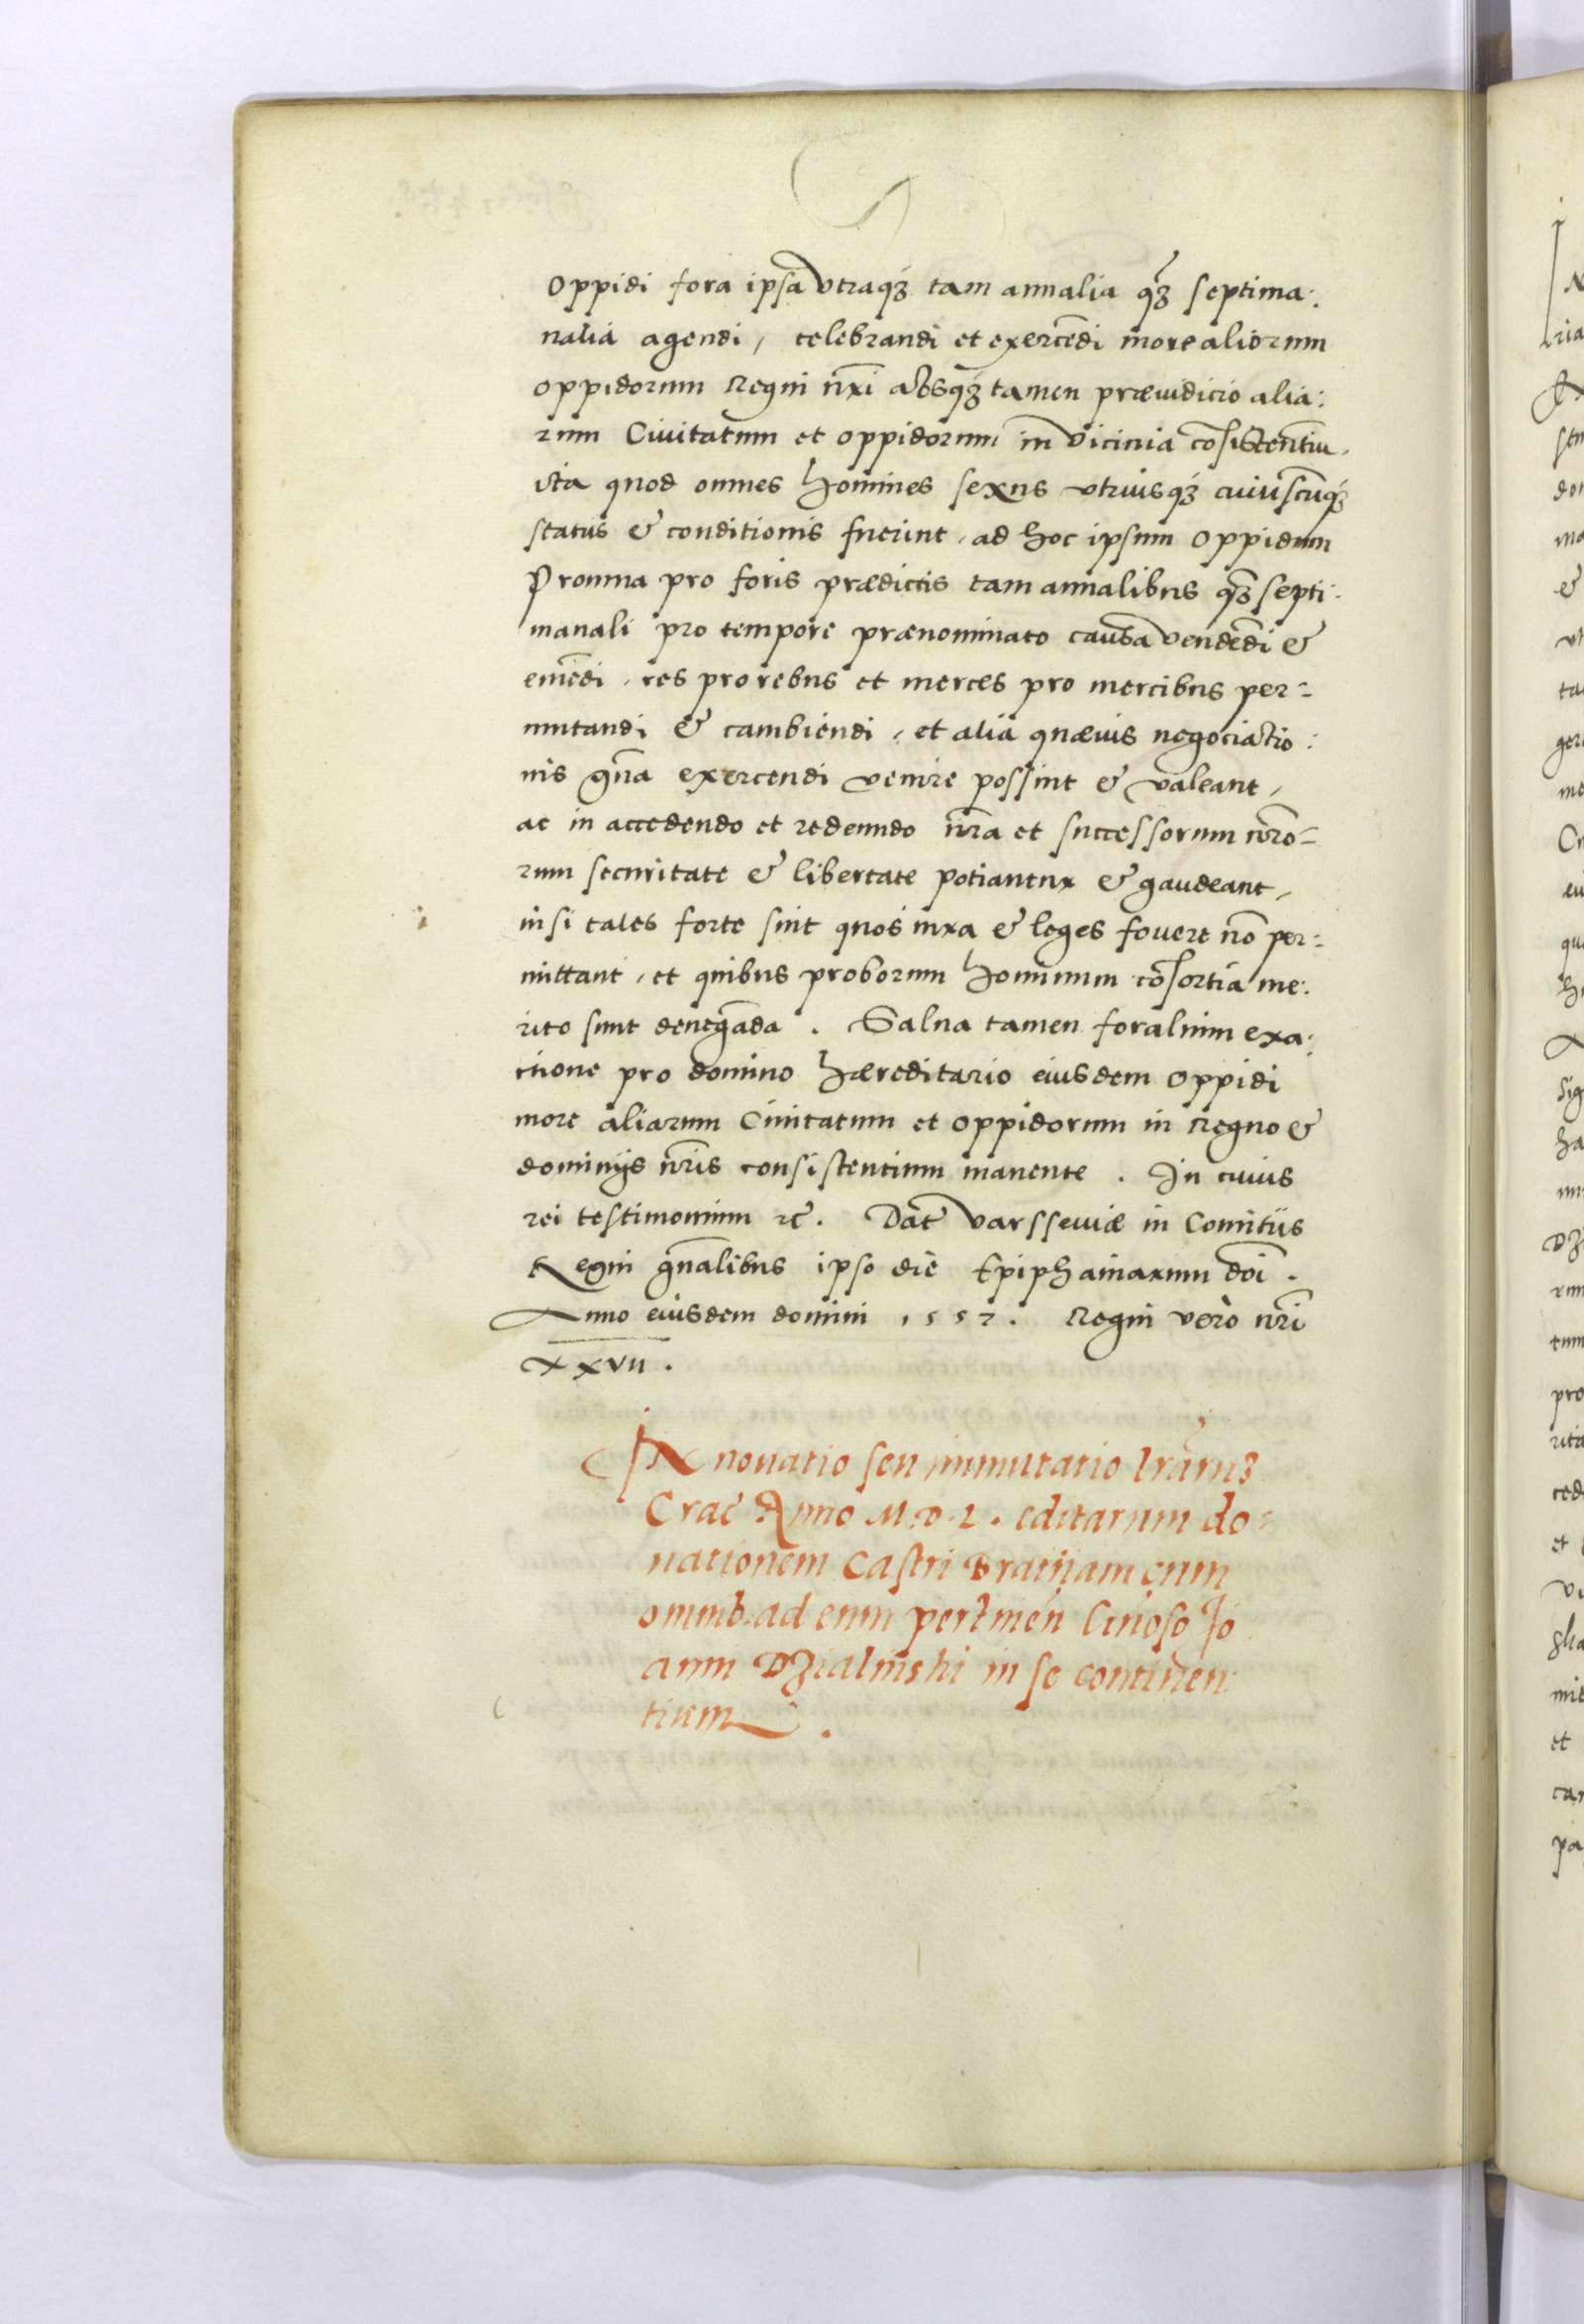 oppidi fora ipsa vtraqꝫ tam annalia qꝫ septima:
nalia agendi, celebrandi et exercẽdi more aliorum
oppidorum Regni nr̃i absqꝫ tamen præiudicio alia:
rum Ciuitatum et oppidorum in vicinia cõsistentiũ.
ita quod omnes homines sexus vtriusqꝫ cuiuscũqꝫ
status & conditionis fuerint, ad hoc ipsum oppidum
Promna pro foris prædictis tam annalibus qꝫ septi:
manali pro tempore prænominato causa vendẽdi &
emẽdi, res pro rebus et merces pro mercibus per=
mutandi & cambiendi, et alia quæuis negociatio:
nis gña exercendi venire possint & valeant,
ac in accedendo et redeundo nr̃a et successorum nr̃o=
rum securitate & libertate potiantur & gaudeant,
nisi tales forte sint quos iura & leges fouere nõ per=
mittant, et quibus proborum hominum cõsortia me:
rito sunt denegãda. Salua tamen foralium exa:
ctione pro domino hæreditario eiusdem oppidi
more aliarum Ciuitatum et oppidorum in Regno &
dominijs nr̃is consistentium manente. In cuius
rei testimonium ꝛc̃. Dat̃ Varsseuiæ in Comitiis
Regni gñalibus ipso die Epiphaniarum dñi.
Anno eiusdem domini 1557. Regni vero nr̃i
XXVII.
INnouatio seu immutatio lr̃aruꝫ
Crac̃ Anno M.D.L. editarum do=
nationem Castri Bratijam cum
omnib. ad eum pertineñ Gñoso Jo
anni Dzialinski in se continen:
tium.